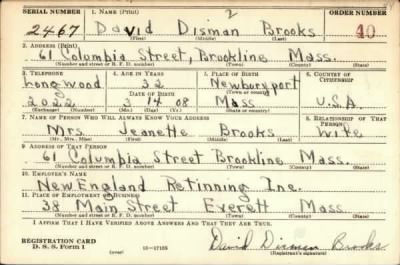 SERIAL NUMBER 1. NAME (Print) 2 ORDER NUMBER
2467 David Disman Brooks 40
(First) (Middle) (Last)
2. ADDRESS (Print)
61 Columbia Street, Brookline Mass.
(Number and street or R. F. D. number) (Town) (County) (State)
3. TELEPHONE 4. AGE IN YEARS 5. PLACE OF BIRTH 6. COUNTRY OF CITIZENSHIP
Longwood 32 Newburyport
DATE OF BIRTH (Town or county)
2022 3 14 08 Mass U.S.A.
(Exchange) (Number) (Mo.) (Day) (Yr.) (State or country)
7. NAME OF PERSON WHO WILL ALWAYS KNOW YOUR ADDRESS 8. RELATIONSHIP OF THAT PERSON
Mrs. Jeanette Brooks Wife
(Mr., Mrs., Miss) (First) (Middle) (Last)
9. ADDRESS OF THAT PERSON
61 Columbia Street Brookline Mass.
(Number and street or R. F. D. number) (Town) (County) (State)
10. EMPLOYER'S NAME
New England Retinning Inc.
11. PLACE OF EMPLOYMENT OR BUSINESS
38 Main Street Everett Mass
(Number and street or R. F. D. number) (Town) (County) (State)
I AFFIRM THAT I HAVE VERIFIED ABOVE ANSWERS AND THAT THEY ARE TRUE.
REGISTRATION CARD David Disman Brooks
D. S. S. Form 1 (over) 16—17105 (Registrant's signature)